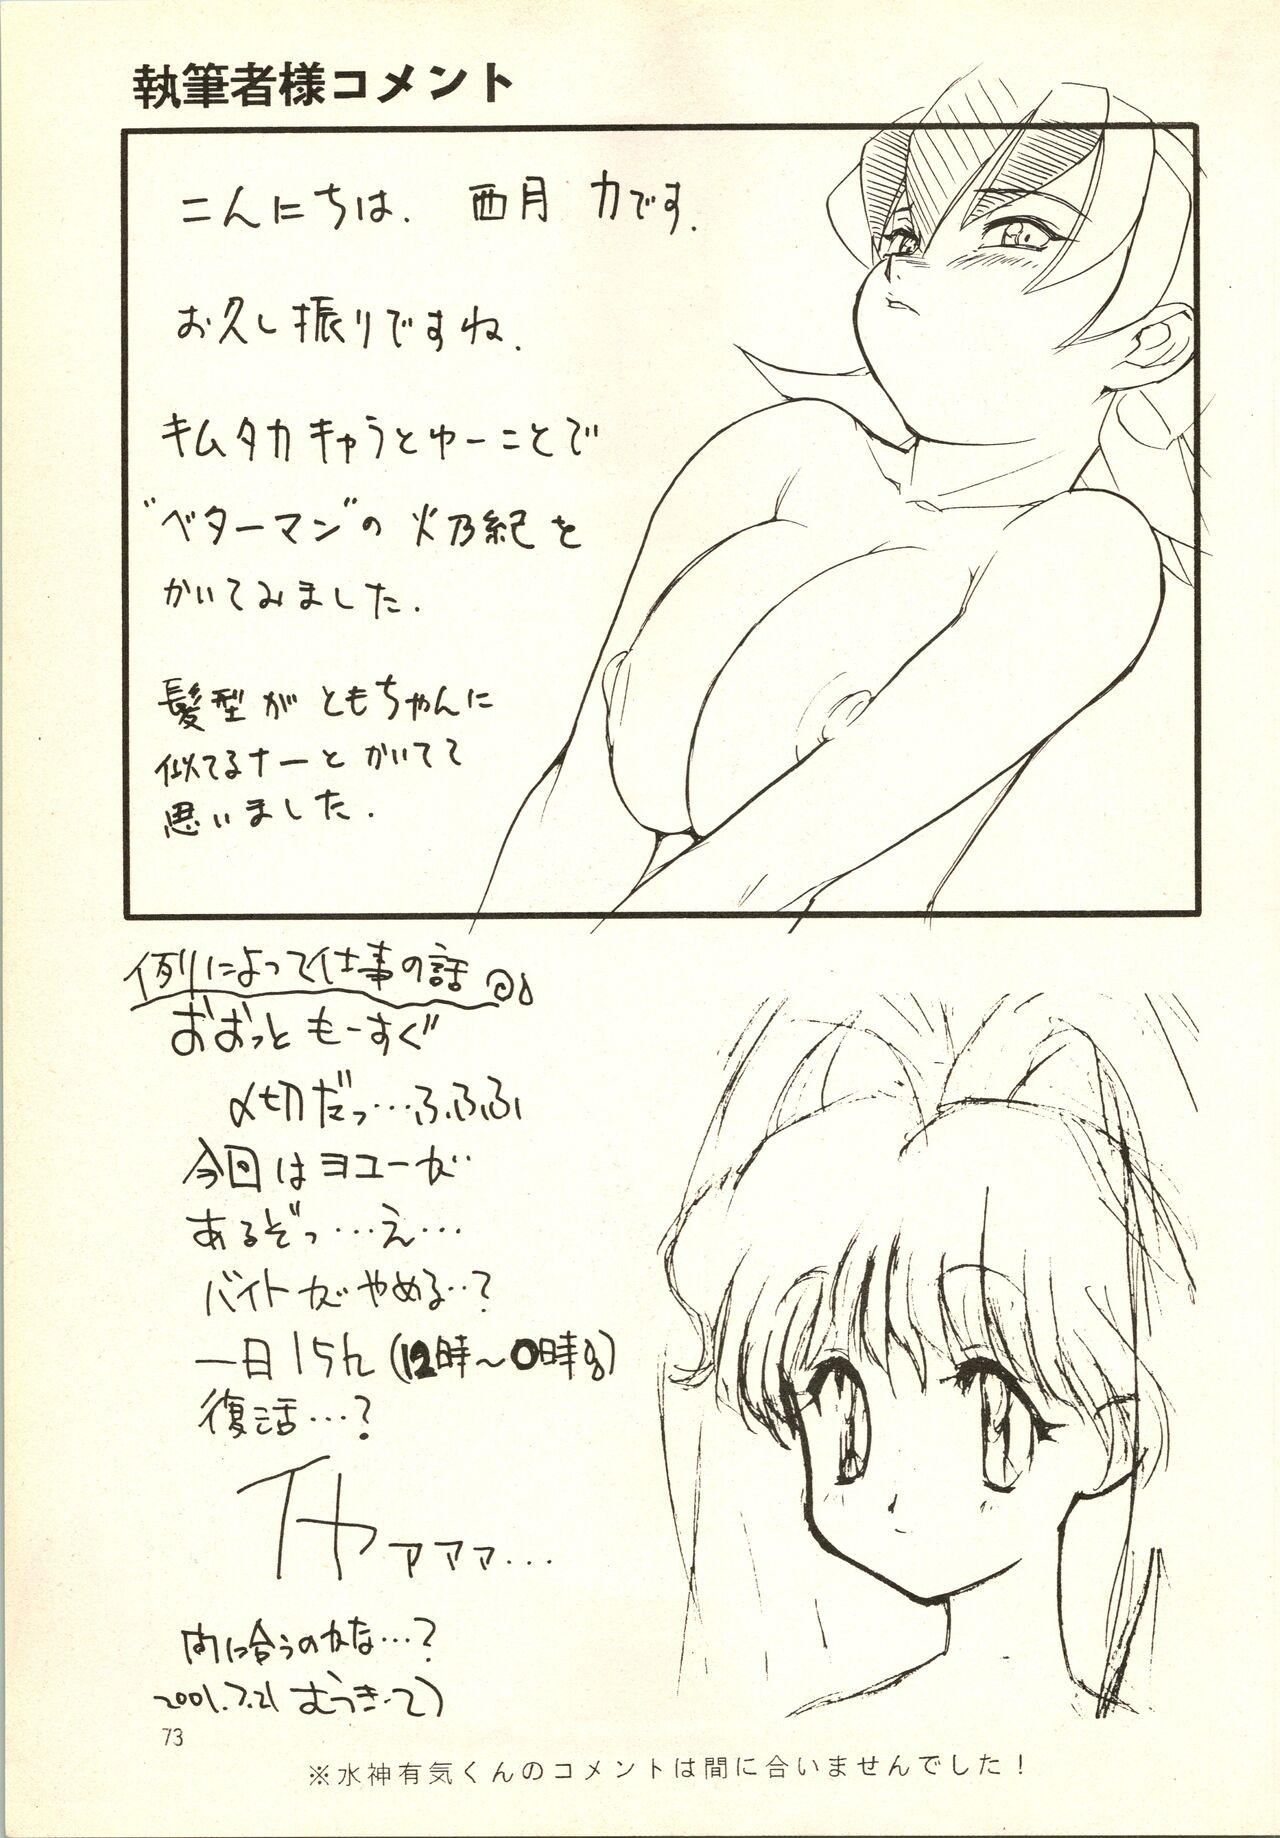 執筆者様コメント
こんにちは. 西月 力です.
お久し振りですね.
キムタカキャラとゆーことで
"ベターマン"の 火乃紀を
かいてみました.
髪型が ともちゃんに
似てるナーと かいてて
思いました.
例によって仕事の話
おおっと もーすぐ
〆切だっ…ふふふふ
今回はヨユーが
あるぞっ…え…
バイトがやめる…?
一日15h (12時〜0時
復活…?
イヤァァァ…
間に合うのかな…?
2001.7.21 むつき
73
※水神有気くんのコメントは間に合いませんでした！